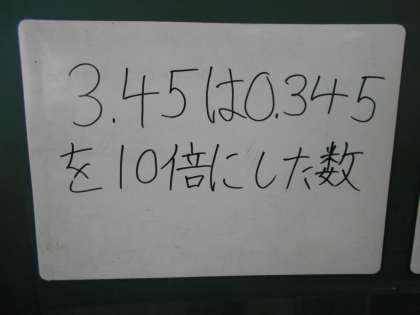 3.45は0.345
を10倍にした数